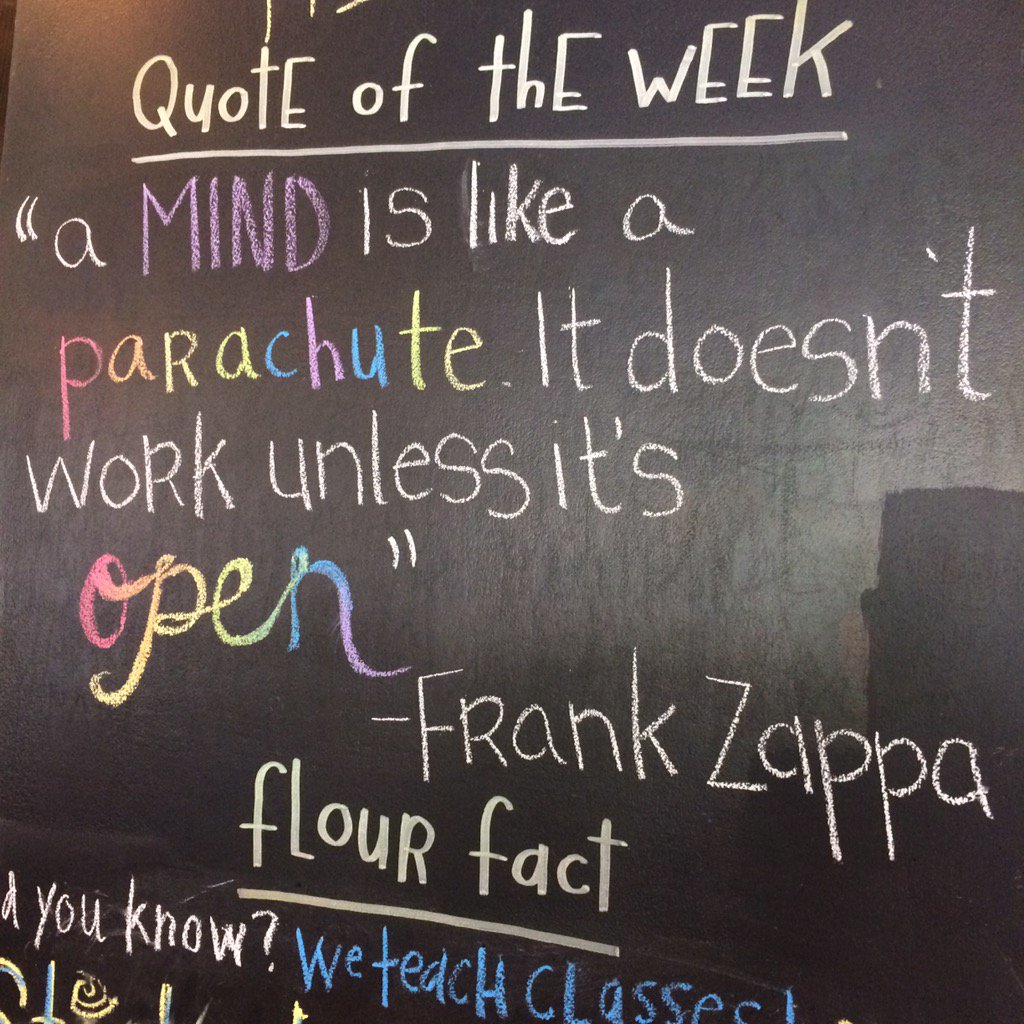 QuotE of thE WEEK
“a MIND is like a
paRachute. It doesn't
WORK unless it's
open”
-FRank Zappa
flouR fact
you know?
We teacH Classes!